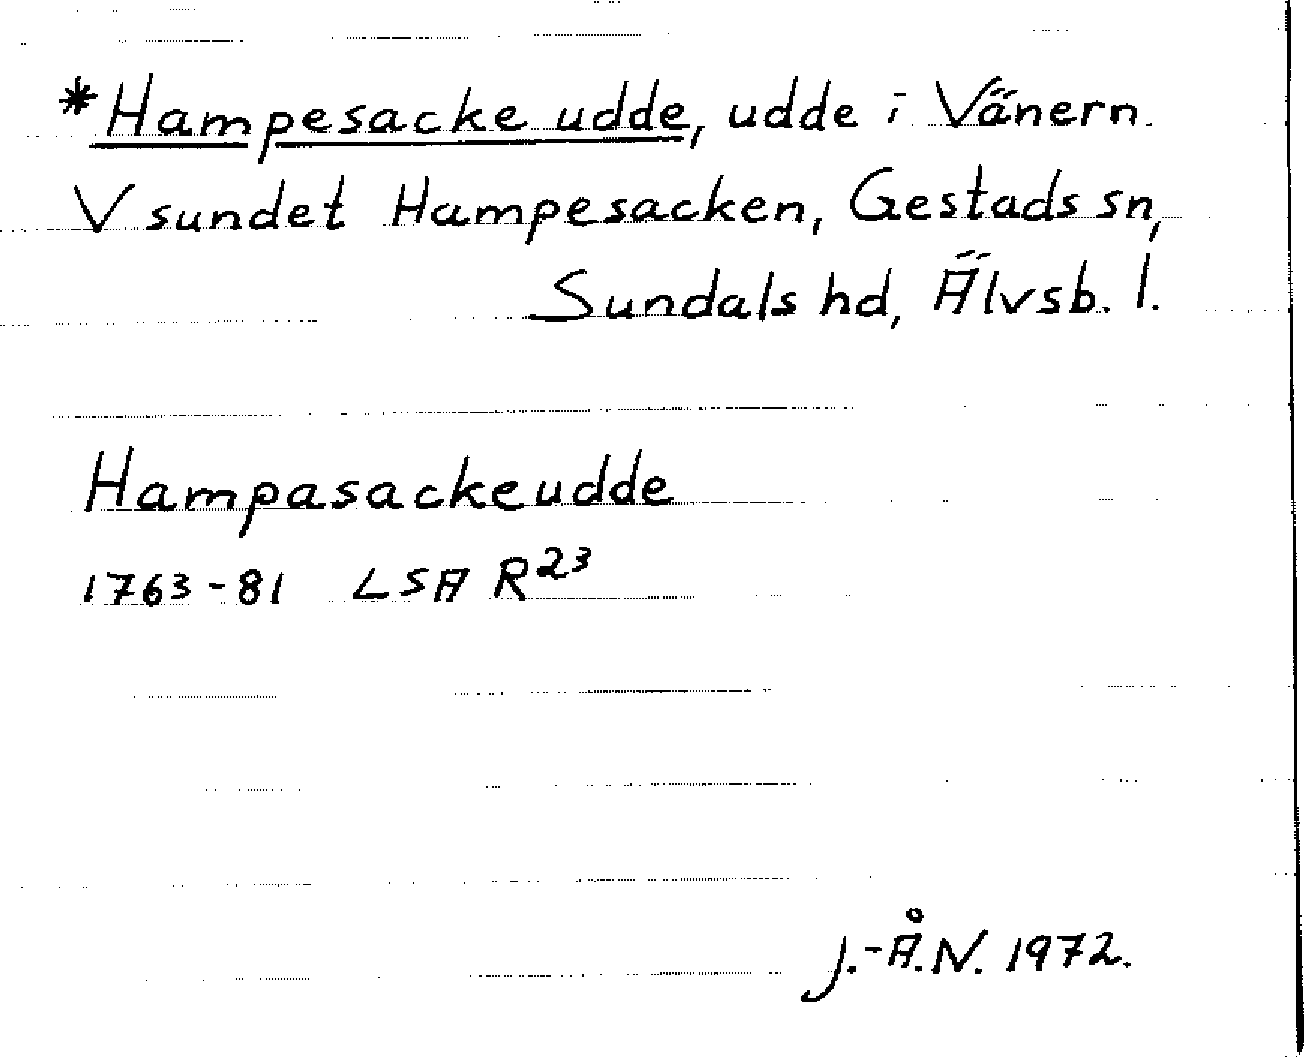 *Hampesacke udde, udde i Vänern.
V sundet Hampesacken, Gestads sn,
Sundals hd, Älvsb. l.
Hampasackeudde
1763-81 LSA R²³
J.-Å.N. 1972.